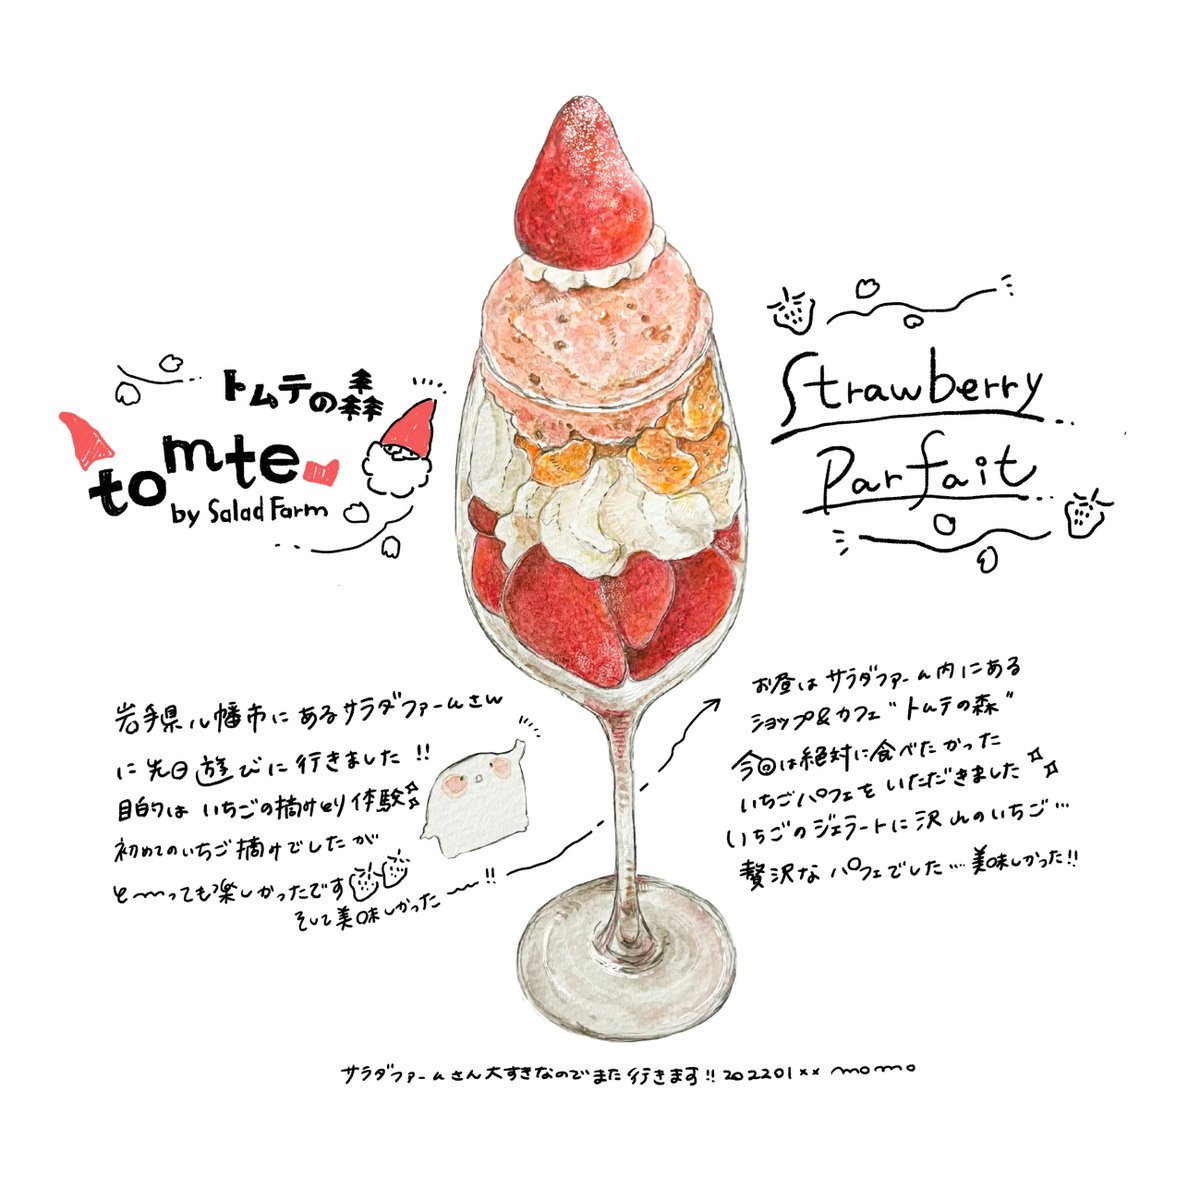 トムテの森
tomte
by Salad Farm
Strawberry
Parfait
岩手県八幡市にあるサラダファームさん
に先日遊びに行きました!!
目的はいちごの摘みとり体験
初めてのいちご摘みでしたが
と〜〜っても楽しかったです
そして美味しかった〜〜!!
お昼はサラダファーム内にある
ショップ&カフェ"トムテの森"
今回は絶対に食べたかった
いちごパフェをいただきました
いちごのジェラートに沢山のいちご…
贅沢なパフェでした…美味しかった!!
サラダファームさん大すきなのでまた行きます!! 202201×× momo